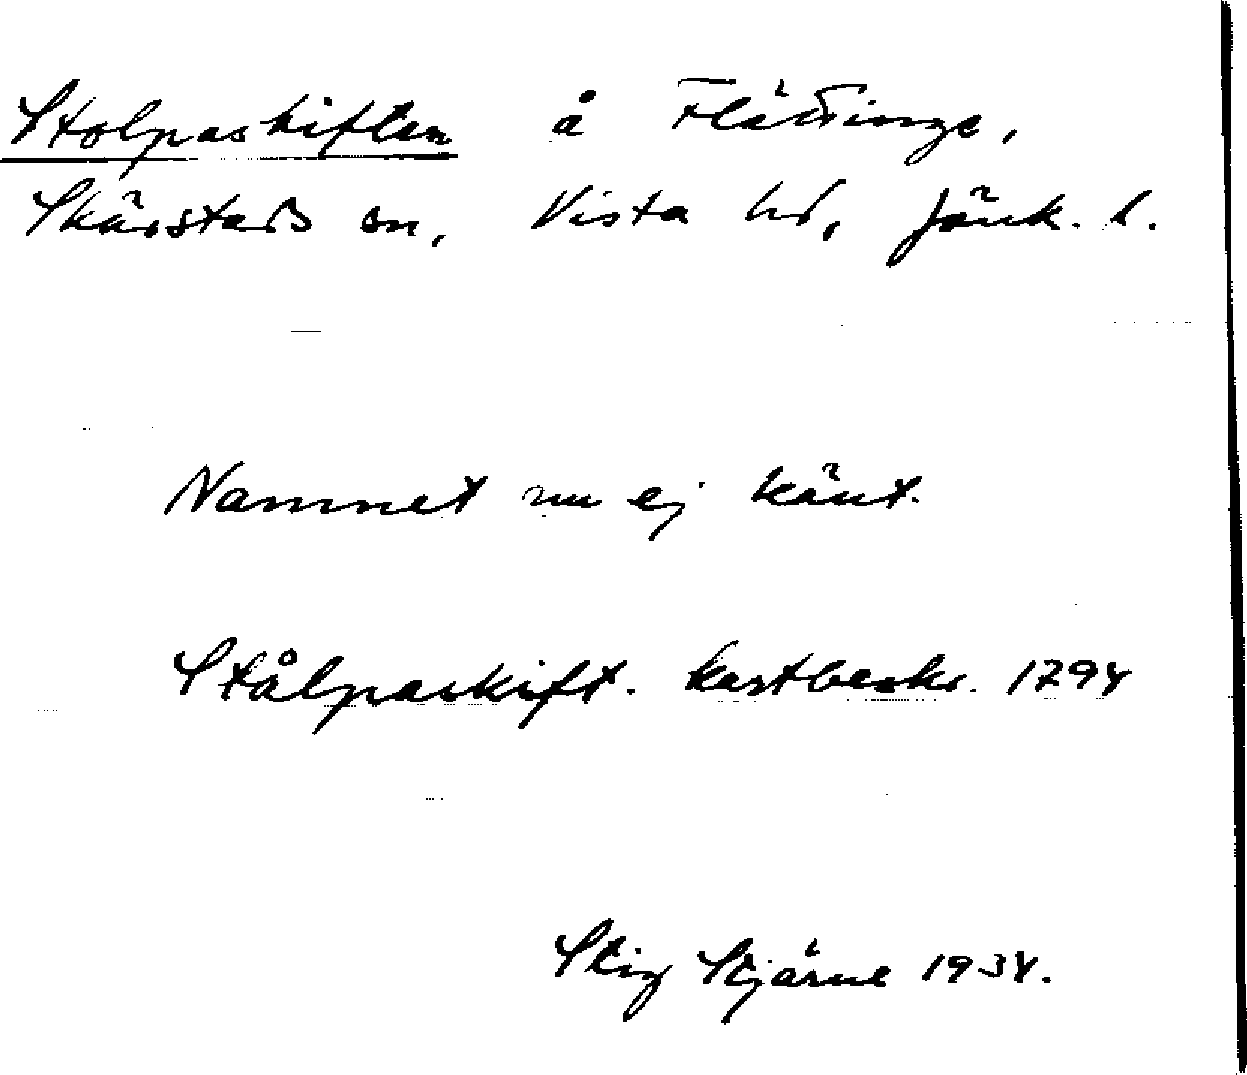 Stolpaskiften å Flädinge,
Skärstads sn, Vista hd, Jönk. l.
Namnet nu ej känt.
Stålpaskift. kartbeskr. 1794
Stig Stjärne 1934.